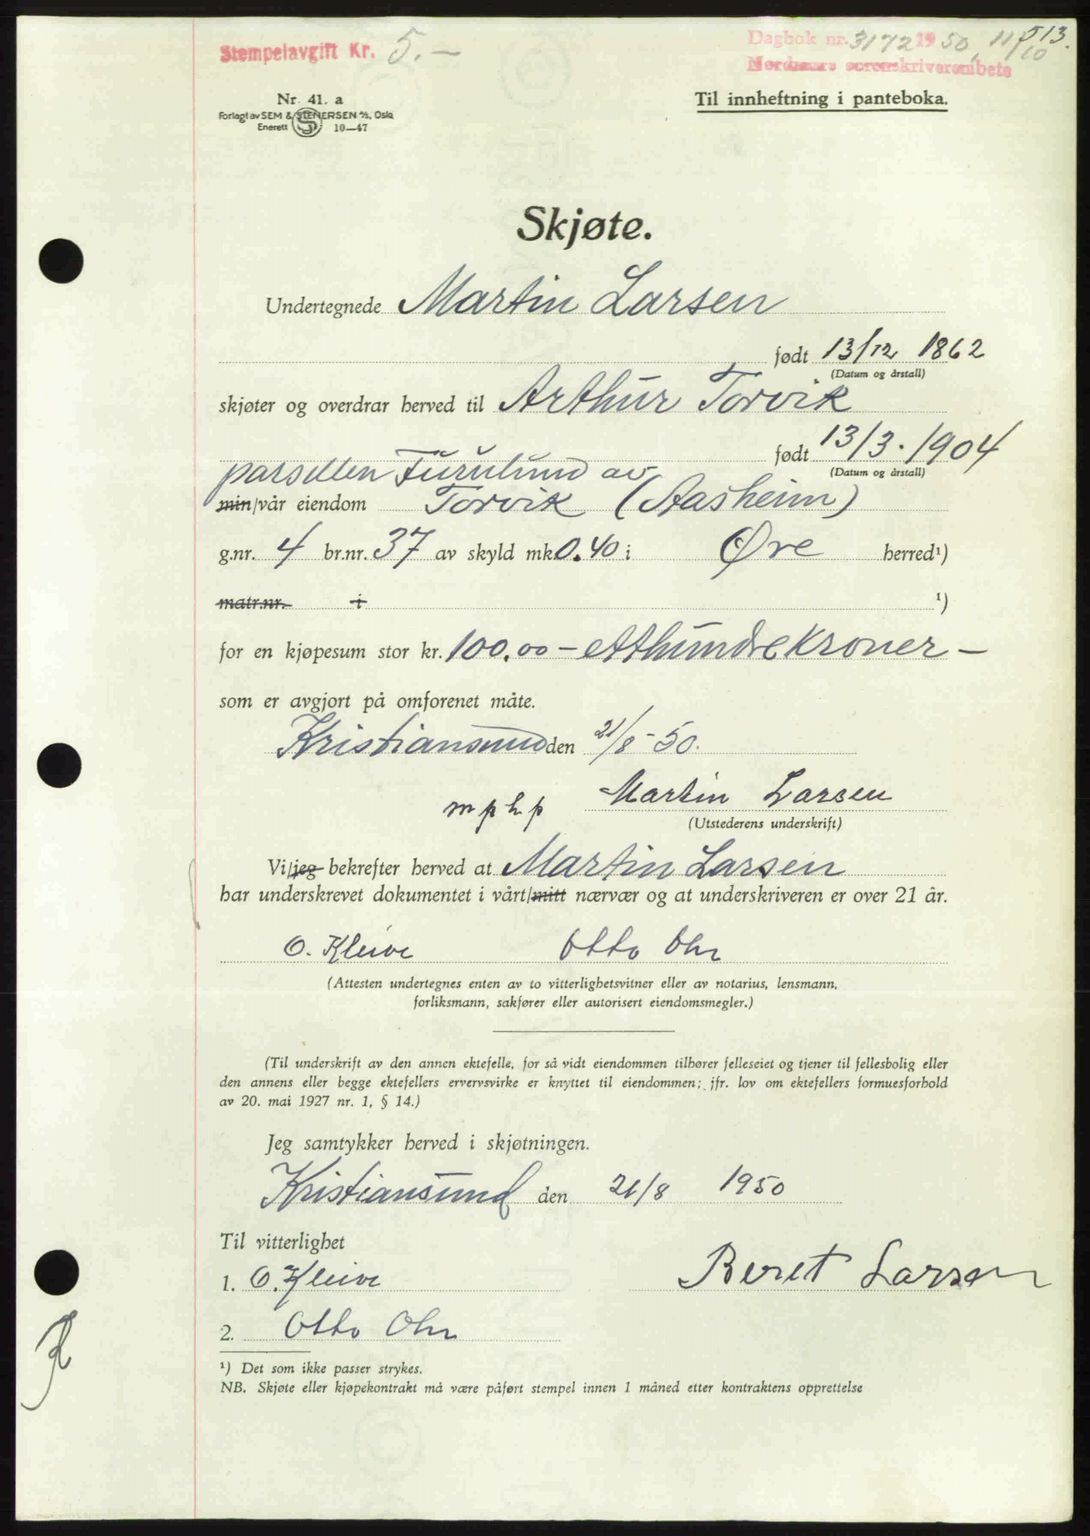 Stempelavgift Kr. 5.—
Dagbok nr. 3172 1950, 11/10
513.
Nordmøre sorenskriverembete
Nr. 41. a
Forlagt av SEM & STENERSEN A/S, Oslo
Enerett 10—47
Til innheftning i panteboka.
Skjøte.
Undertegnede Martin Larsen
født 13/12 1862
(Datum og årstall)
skjøter og overdrar herved til Arthur Torvik
født 13/3. 1904
(Datum og årstall)
parsellen Furulund av
min/vår eiendom Torvik (Aasheim)
g.nr. 4 br.nr. 37 av skyld mk. 0.40 i Øre herred¹)
matr.nr. i ¹)
for en kjøpesum stor kr. 100.00 — etthundrekroner —
som er avgjort på omforenet måte.
Kristiansund den 21/8 - 50.
m p h p Martin Larsen
(Utstederens underskrift)
Vi/jeg bekrefter herved at Martin Larsen
har underskrevet dokumentet i vårt/mitt nærvær og at underskriveren er over 21 år.
O. Kleive Otto Ohr
(Attesten undertegnes enten av to vitterlighetsvitner eller av notarius, lensmann,
forliksmann, sakfører eller autorisert eiendomsmegler.)
(Til underskrift av den annen ektefelle, for så vidt eiendommen tilhører felleseiet og tjener til fellesbolig eller
den annens eller begge ektefellers ervervsvirke er knyttet til eiendommen; jfr. lov om ektefellers formuesforhold
av 20. mai 1927 nr. 1, § 14.)
Jeg samtykker herved i skjøtningen.
Kristiansund den 21/8 1950
Til vitterlighet
1. O. Kleive Beret Larsen
2. Otto Ohr
¹) Det som ikke passer strykes.
NB. Skjøte eller kjøpekontrakt må være påført stempel innen 1 måned etter kontraktens opprettelse